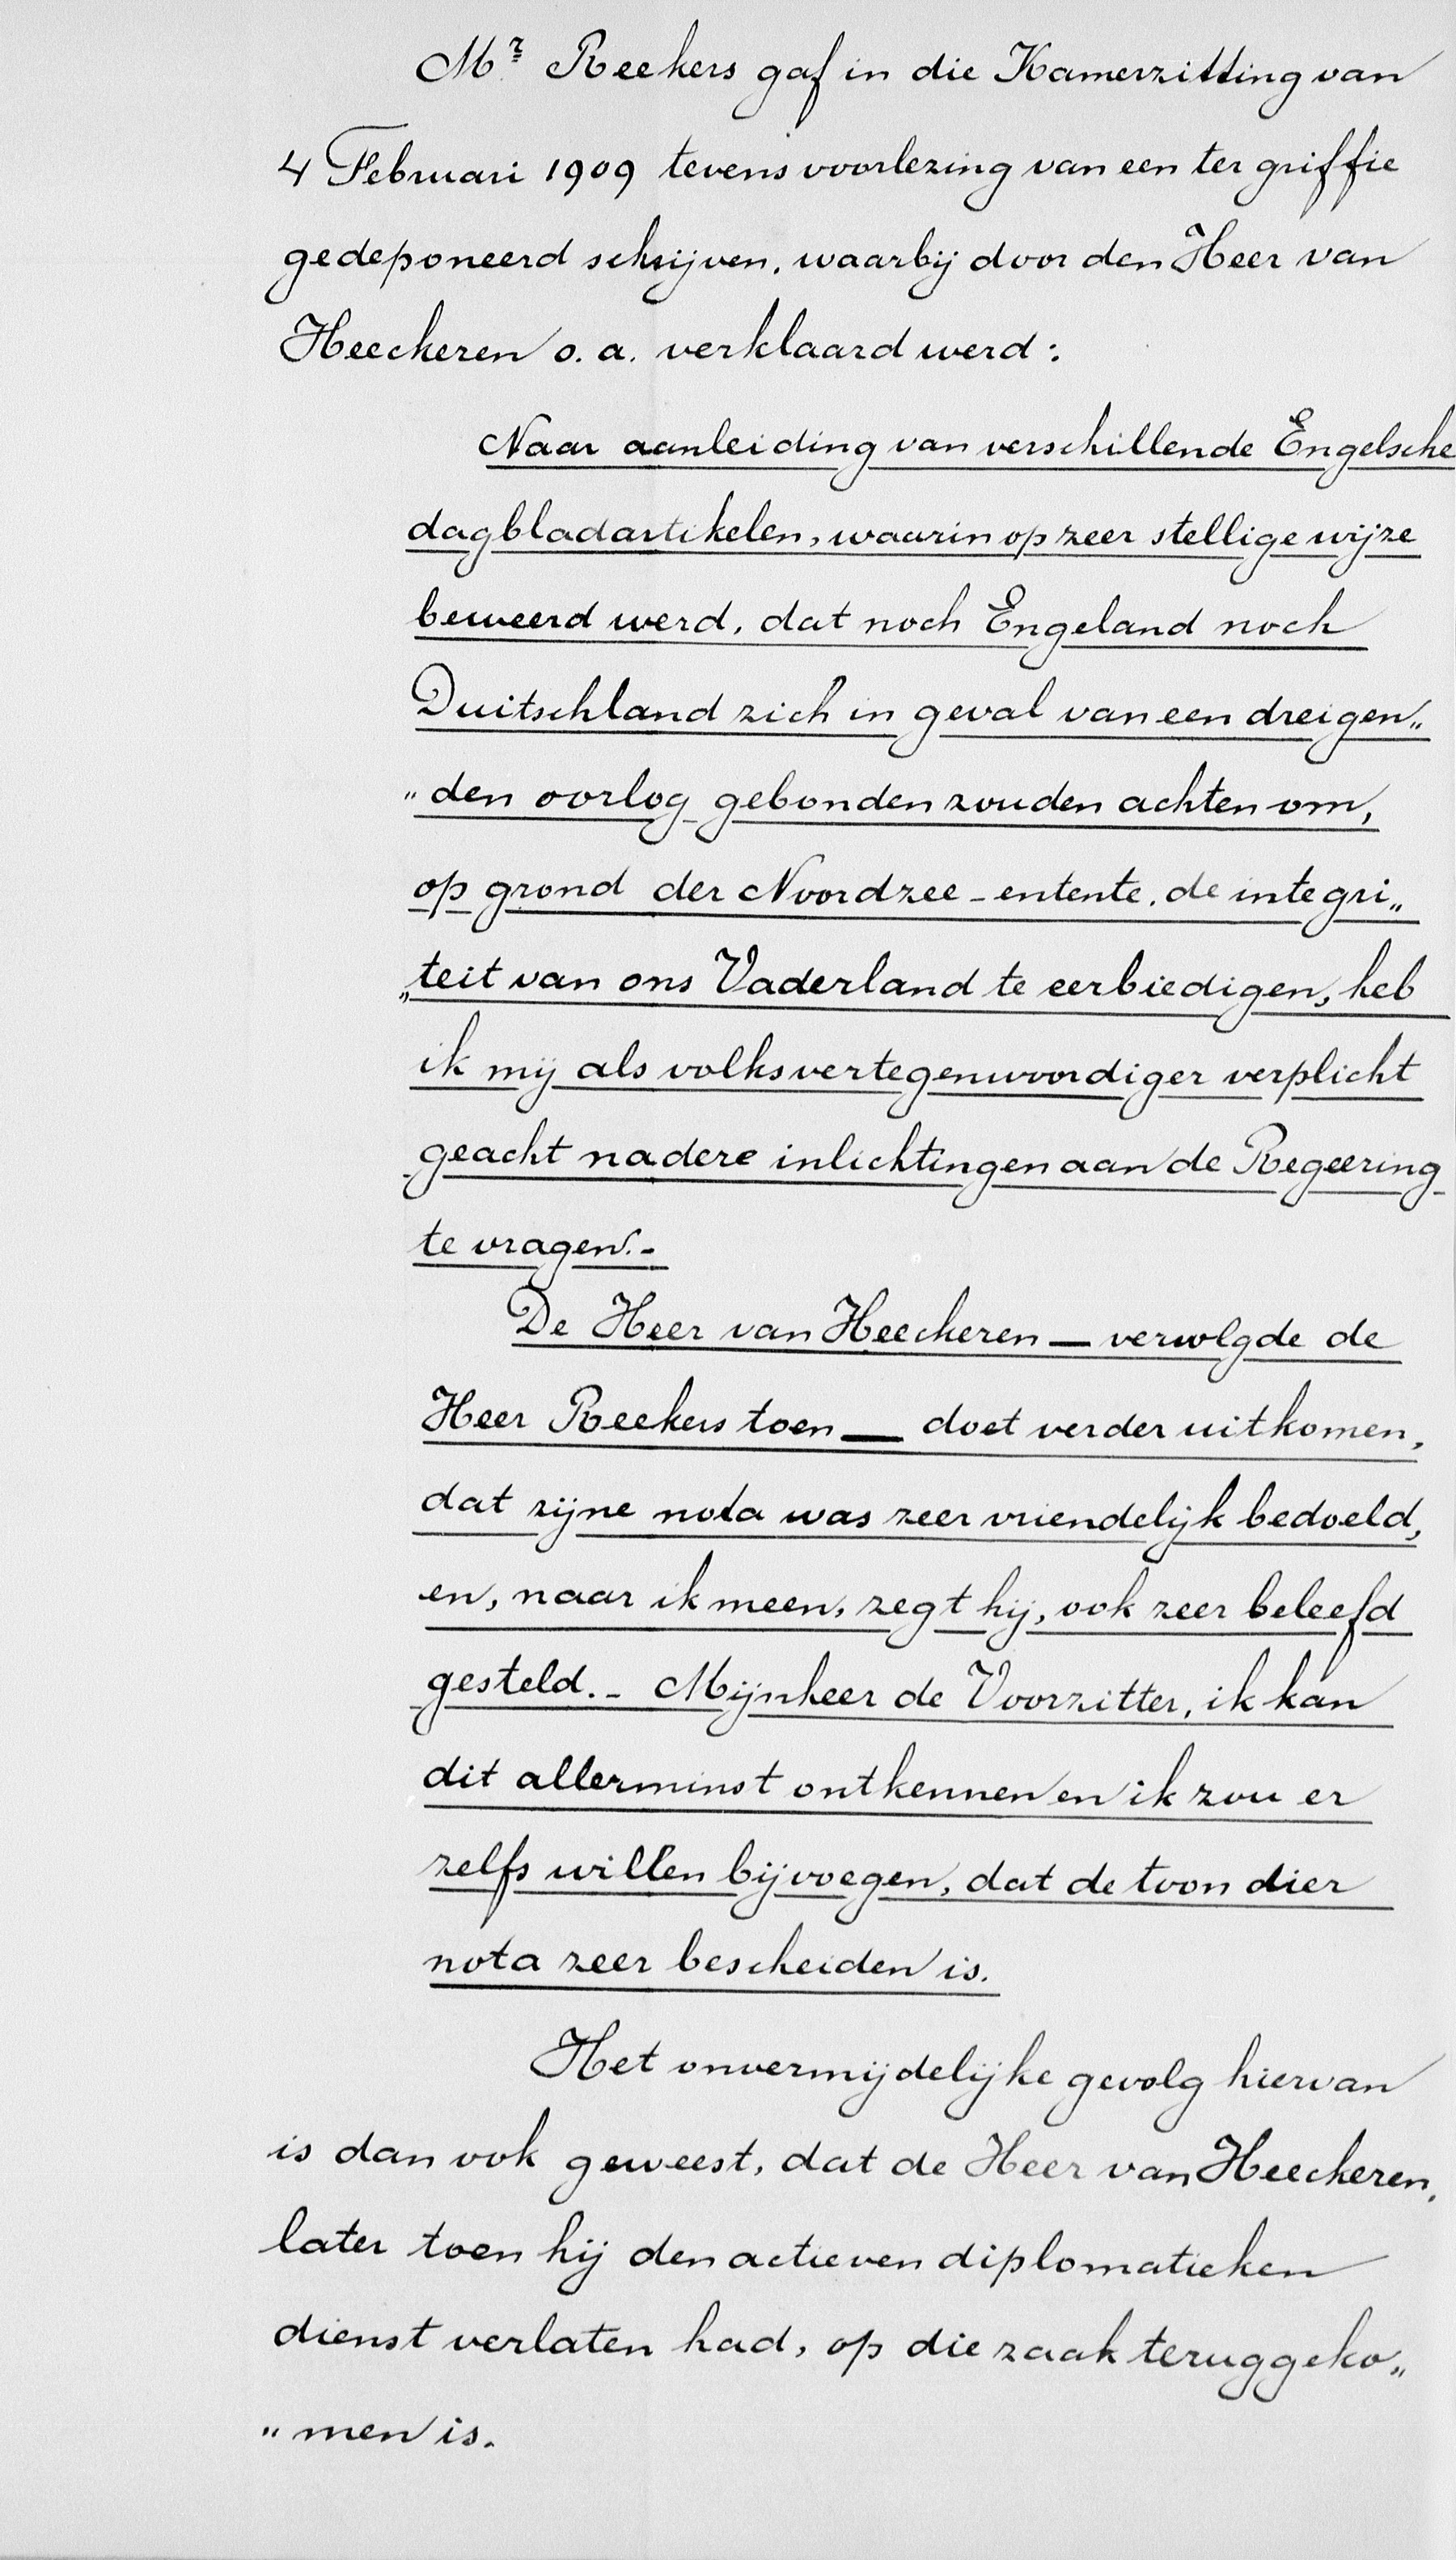 Mr. Reekers gaf in die Kamerzitting van
4 Februari 1909 tevens voorlezing van een ter griffie
gedeponeerd schrijven, waarbij door den Heer van
Heeckeren o.a. verklaard werd:
Naar aanleiding van verschillende Engelsche
dagbladartikelen, waarin op zeer stellige wijze
beweerd werd, dat noch Engeland noch
Duitschland zich in geval van een dreigen„
„den oorlog gebonden zouden achten om,
op grond der Noordzee-entente, de integri„
„teit van ons Vaderland te eerbiedigen, heb
ik mij als volksvertegenwoordiger verplicht
geacht nadere inlichtingen aan de Regeering
te vragen.-
De Heer van Heeckeren — vervolgde de
Heer Reekers toen — doet verder uitkomen,
dat zijne nota was zeer vriendelijk bedoeld,
en, naar ik meen, zegt hij, ook zeer beleefd
gesteld.- Mijnheer de Voorzitter, ik kan
dit allerminst ontkennen en ik zou er
zelfs willen bijvoegen, dat de toon dier
nota zeer bescheiden is.
Het onvermijdelijke gevolg hiervan
is dan ook geweest, dat de Heer van Heeckeren,
later toen hij den actieven diplomatieken
dienst verlaten had, op die zaak teruggeko„
„men is.